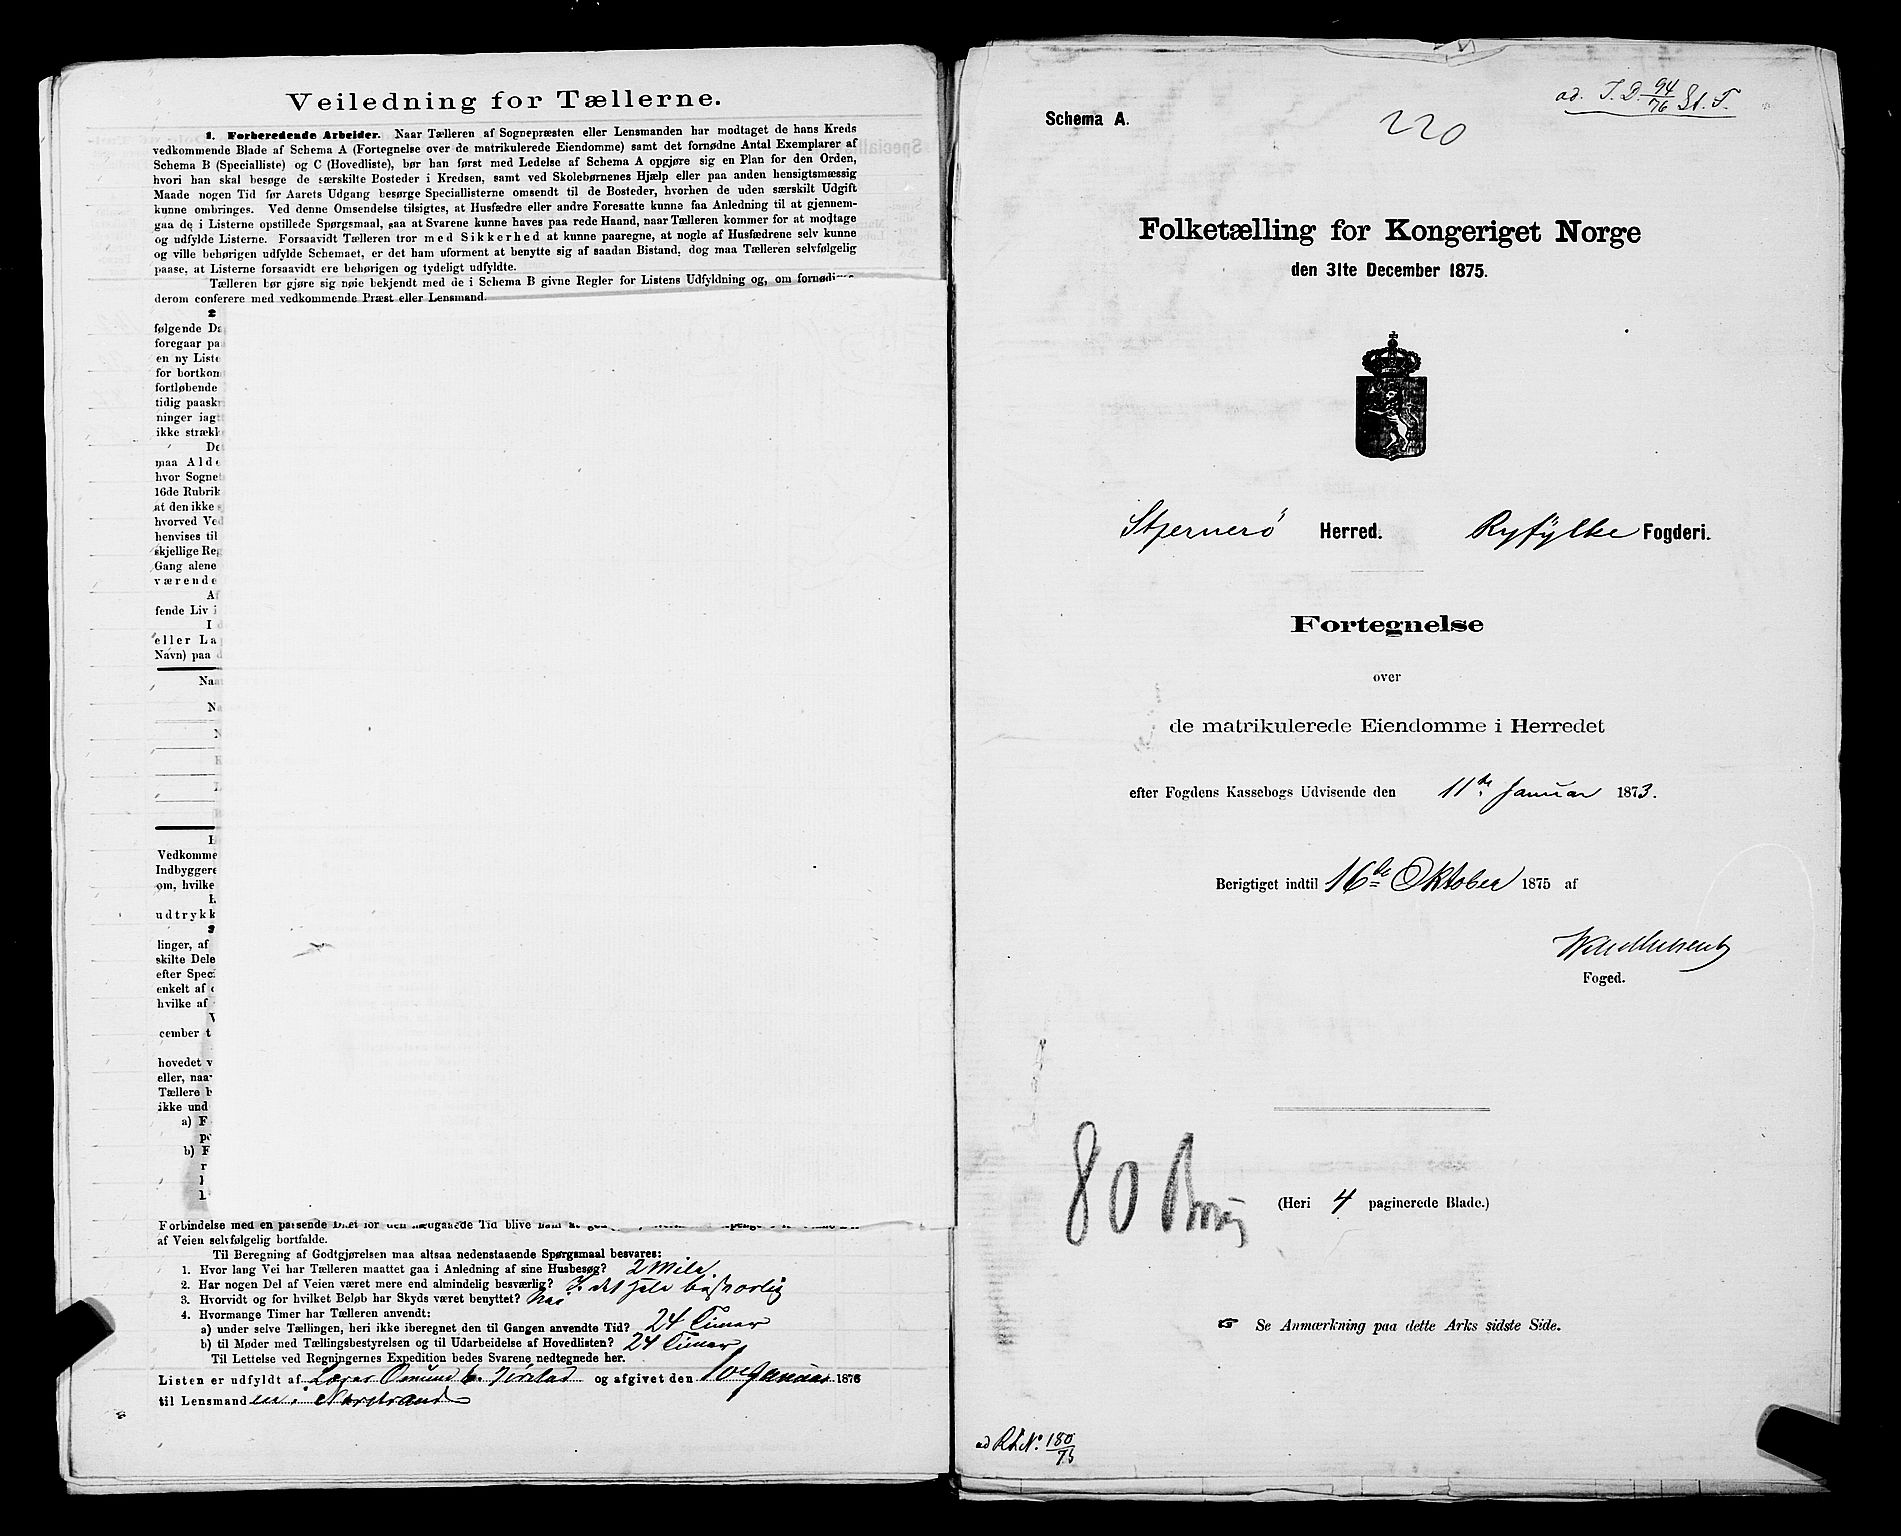 Veiledning for Tællerne.
1. Forberedende Arbeider. Naar Tælleren af Sognepræsten eller Lensmanden har modtaget de hans Kreds
vedkommende Blade af Schema A (Fortegnelse over de matrikulerede Eiendomme) samt det fornødne Antal Exemplarer af
Schema B (Specialliste) og C (Hovedliste), bør han først med Ledelse af Schema A opgjøre sig en Plan for den Orden,
hvori han skal besøge de særskilte Bosteder i Kredsen, samt ved Skolebørnenes Hjælp eller paa anden hensigtsmæssig
Maade nogen Tid før Aarets Udgang besørge Speciallisterne omsendt til de Bosteder, hvorhen de uden særskilt Udgift
kunne ombringes. Ved denne Omsendelse tilsigtes, at Husfædre eller andre Foresatte kunne faa Anledning til at gjennem-
gaa de i Listerne opstillede Spørgsmaal, saa at Svarene kunne haves paa rede Haand, naar Tælleren kommer for at modtage
og udfylde Listerne. Forsaavidt Tælleren tror med Sikkerhed at kunne paaregne, at nogle af Husfædrene selv kunne
og ville behørigen udfylde Schemaet, er det ham uforment at benytte sig af saadan Bistand, dog maa Tælleren selvfølgelig
paase, at Listerne forsaavidt ere behørigen og tydeligt udfyldte.
Tælleren bør gjøre sig nøie bekjendt med de i Schema B givne Regler for Listens Udfyldning og, om
derom conferere med vedkommende Præst eller Lensmand.
2
følgende
foregaar
en ny
for
fortløbende
tidig
ninger
ikke
maa
hvor
16de
at den ikke
hvorved
henvises til
skjellige
Gang alene
værende
fende Liv i
I
eller
Navn) paa
om,
linger, af
skilte
efter
enkelt af
hvilke af
cember
hovedet
eller,
Tællere
ikke
a)
b)
Forbindelse med en passende Diæt for den
af Veien selvfølgelig bortfalde.
Til Beregning af Godtgjørelsen maa altsaa nedenstaaende Spørgsmaal besvares:
1. Hvor lang Vei har Tælleren maattet gaa i Anledning af sine Husbesøg? 2 Mile
2. Har nogen Del af Veien været mere end almindelig besværlig? I det hele besværlig
3. Hvorvidt og for hvilket Beløb har Skyds været benyttet?
4. Hvormange Timer har Tælleren anvendt:
a) under selve Tællingen, heri ikke iberegnet den til Gangen anvendte Tid? 24 Timer
b) til Møder med Tællingsbestyrelsen og til Udarbeidelse af Hovedlisten? 24 Timer
Til Lettelse ved Regningernes Expedition bedes Svarene nedtegnede her.
Listen er udfyldt af Lærer Osmund og afgivet den Januar 1876
til Lensmanden i Narstrand
ad. T. D. 94/76 St. T.
Schema A.
220
Folketælling for Kongeriget Norge
den 31te December 1875.
Stjernerö Herred. Ryfylke Fogderi.
Fortegnelse
over
de matrikulerede Eiendomme i Herredet
efter Fogdens Kassebogs Udvisende den 11te Januar 1873.
Berigtiget indtil 16de Oktober 1875 af
Foged.
80
(Heri 4 paginerede Blade.)
☞ Se Anmærkning paa dette Arks sidste Side.
ad R. T. No. 180/75